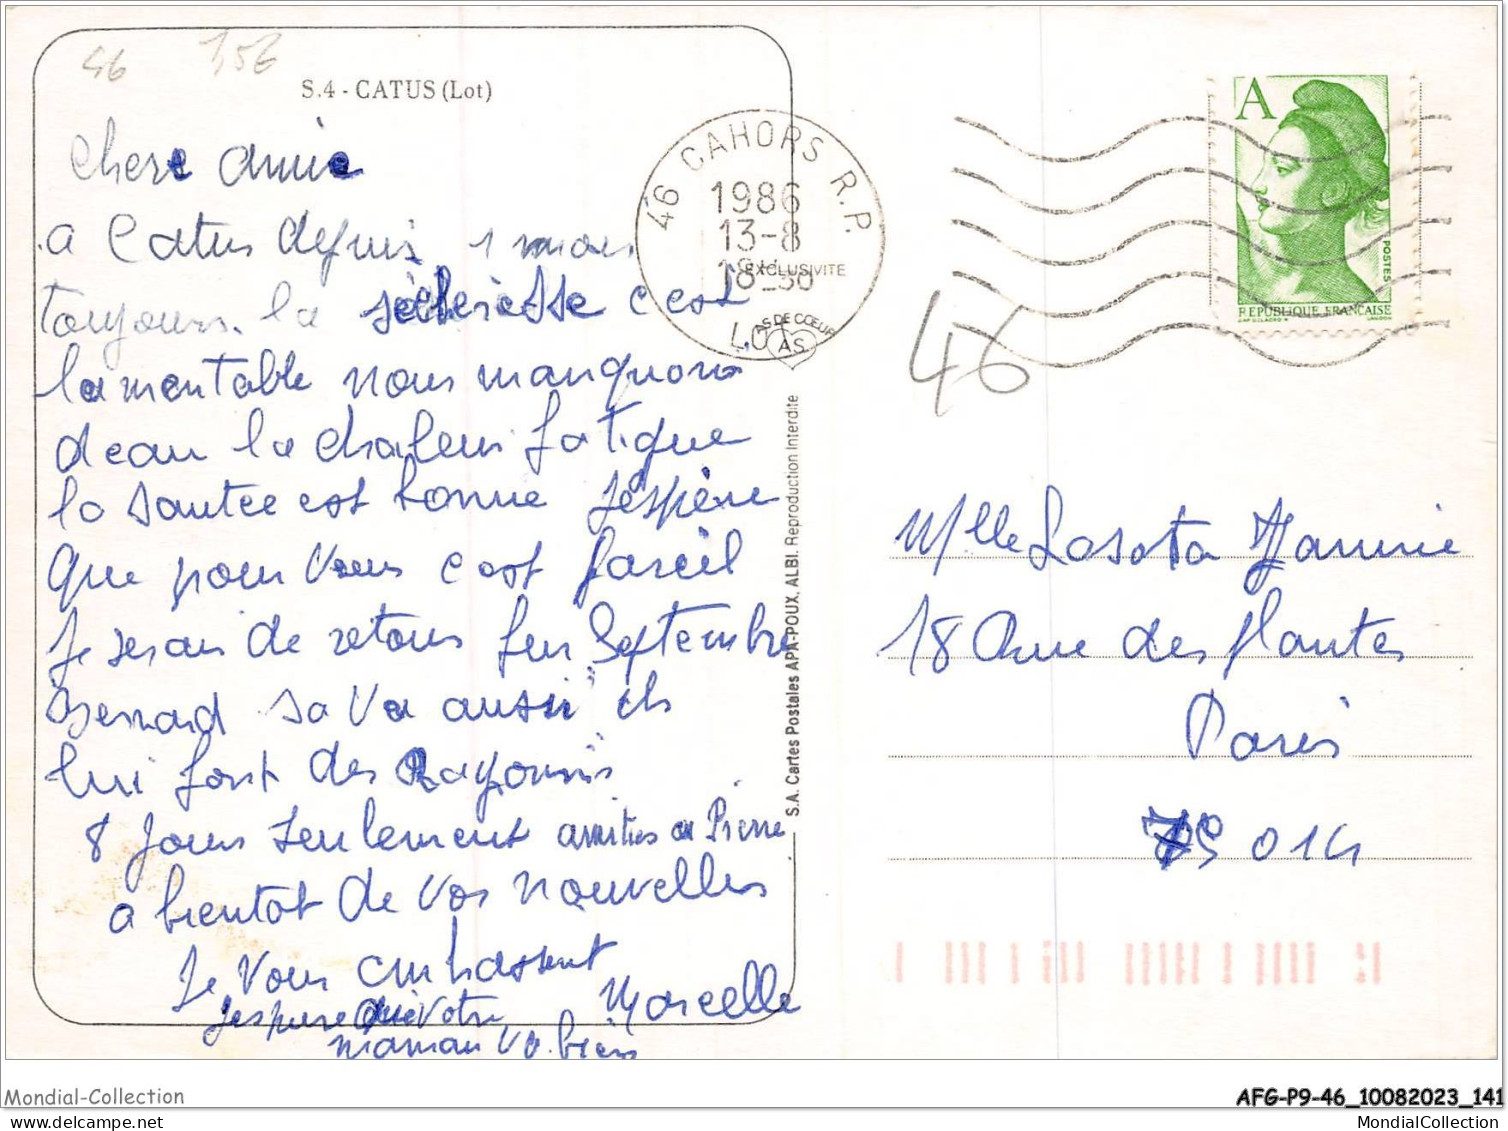 46 1,5€
S.4 - CATUS (Lot)
chere amie
a Catus depuis 1 mois
toujours la sècheresse c'est
lamentable nous manquons
deau la chaleur fatigue
la santee est bonne Jespère
que pour vous c'est pareil
Je serai de retour fin Septembre
Bernard sa va aussi ils
lui font des Rayonns
8 jours seulement amities a Pierre
a bientot de vos nouvelles
Je vous embrassent
Marcelle
Jespere que votre
maman va bien
46 CAHORS R.P.
1986
13-8
18-30
LOT
EXCLUSIVITE
AS DE CŒUR
A.S.
S.A. Cartes Postales APA-POUX, ALBI. Reproduction Interdite
A
POSTES
REPUBLIQUE FRANCAISE
46
Mlle Lasota Jannie
18 Rue des plantes
Paris
75014
Mondial-Collection
AFG-P9-46_10082023_141
MondialCollection